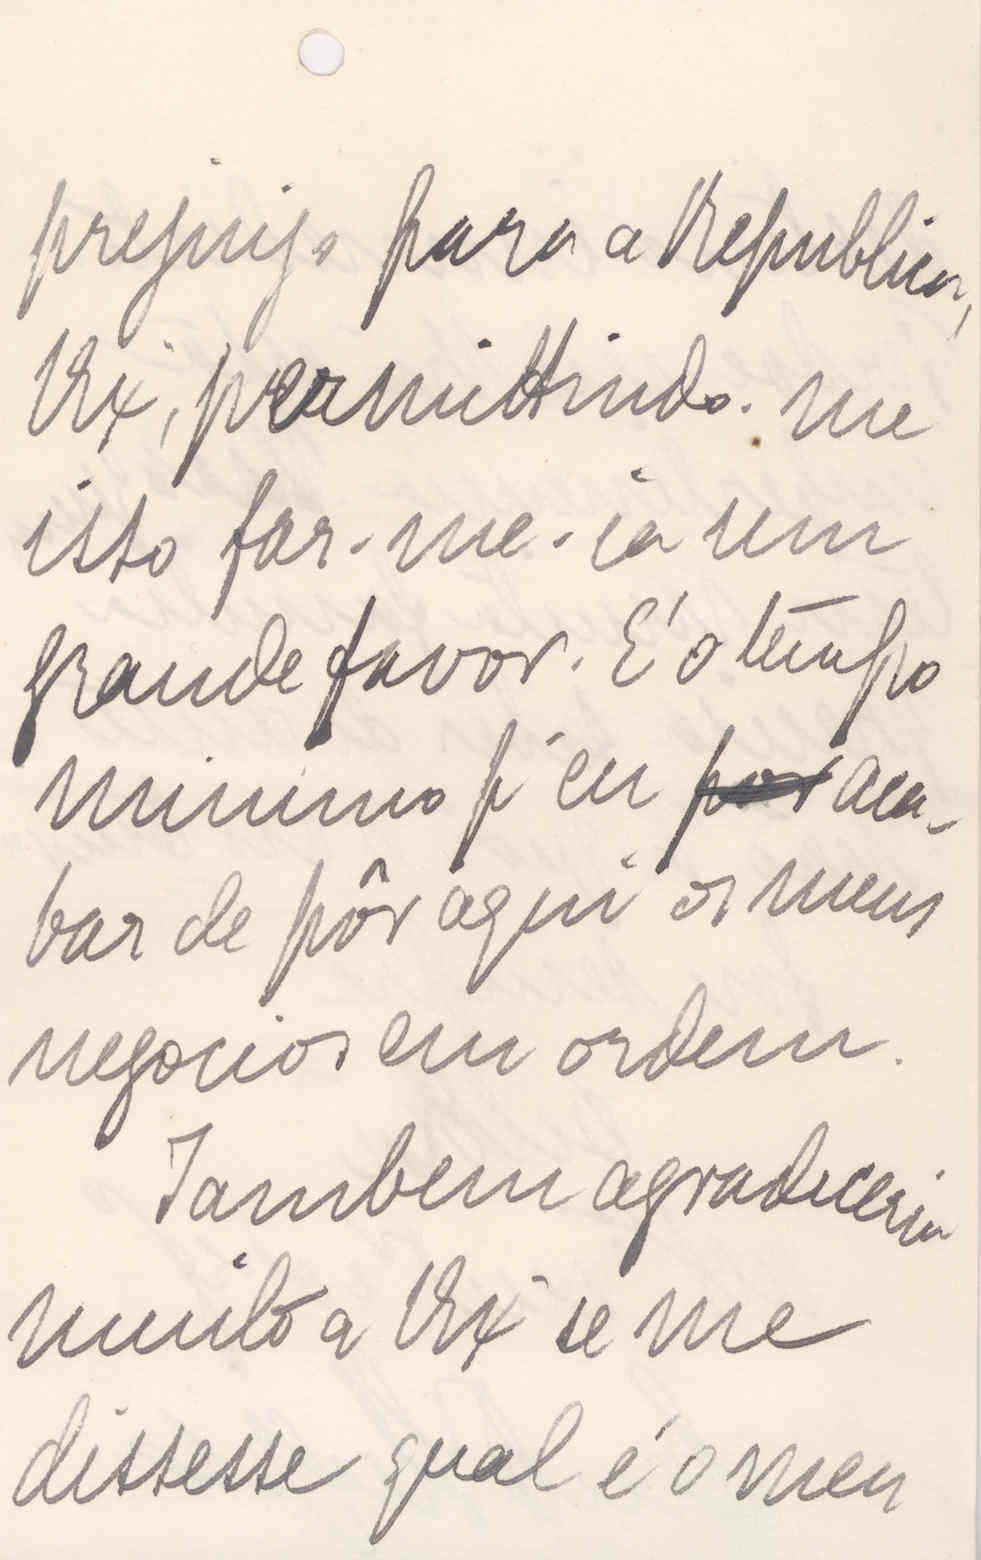 prejuizo para a Republica,
VEx, permittindo-me
isso far-me-ia um
grande favor. E' o tempo
minimo p' eu por aca-
bar de pôr aqui os meus
negocios em ordem.
Tambem agradeceria
muito a VEx se me
dissesse qual é o meu